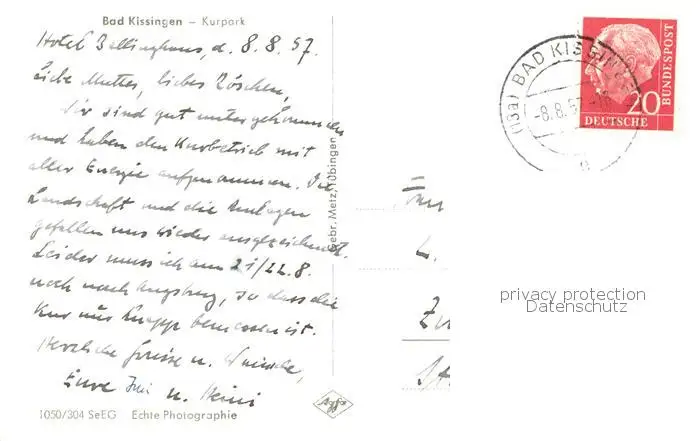 Bad Kissingen – Kurpark
Hotel Bellinghaus, d. 8. 8. 57.
Liebe Mutter, liebes Röschen,
Wir sind gut untergekommen
und haben den Kurbetrieb mit
aller Energie aufgenommen. Die
Landschaft und die Anlagen
gefallen uns wieder ausgezeichnet.
Leider muss ich am 21/22.8.
noch nach Augsburg, so dass die
Kur nur knapp bemessen ist.
Herzliche Grüsse u. Wünsche,
Eure u. Heini
1050/304 SeEG Echte Photographie
Gebr. Metz, Tübingen
Agfa
(13a) BAD KISSINGEN
-8.8.57
DEUTSCHE
BUNDESPOST
20
privacy protection
Datenschutz